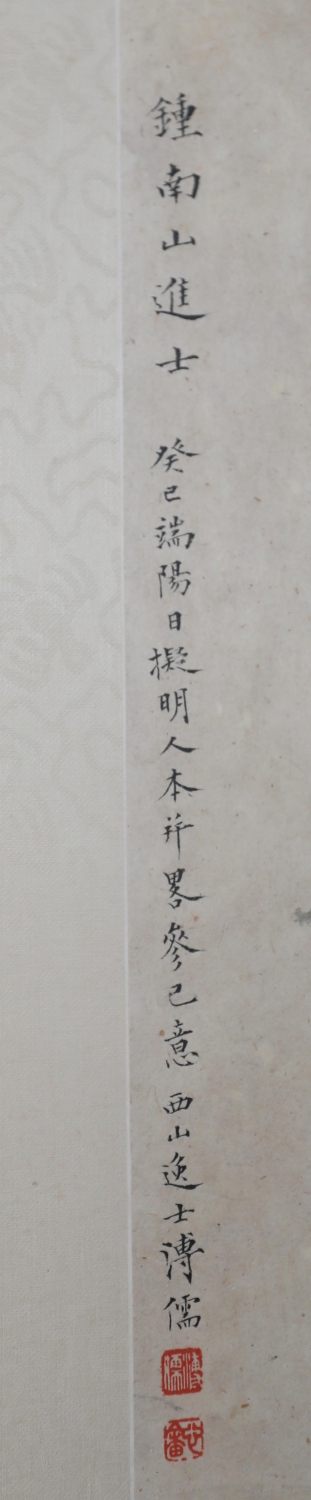 鍾南山進士 癸己端陽日擬明人本并畧參己意 西山逸士溥儒
溥儒